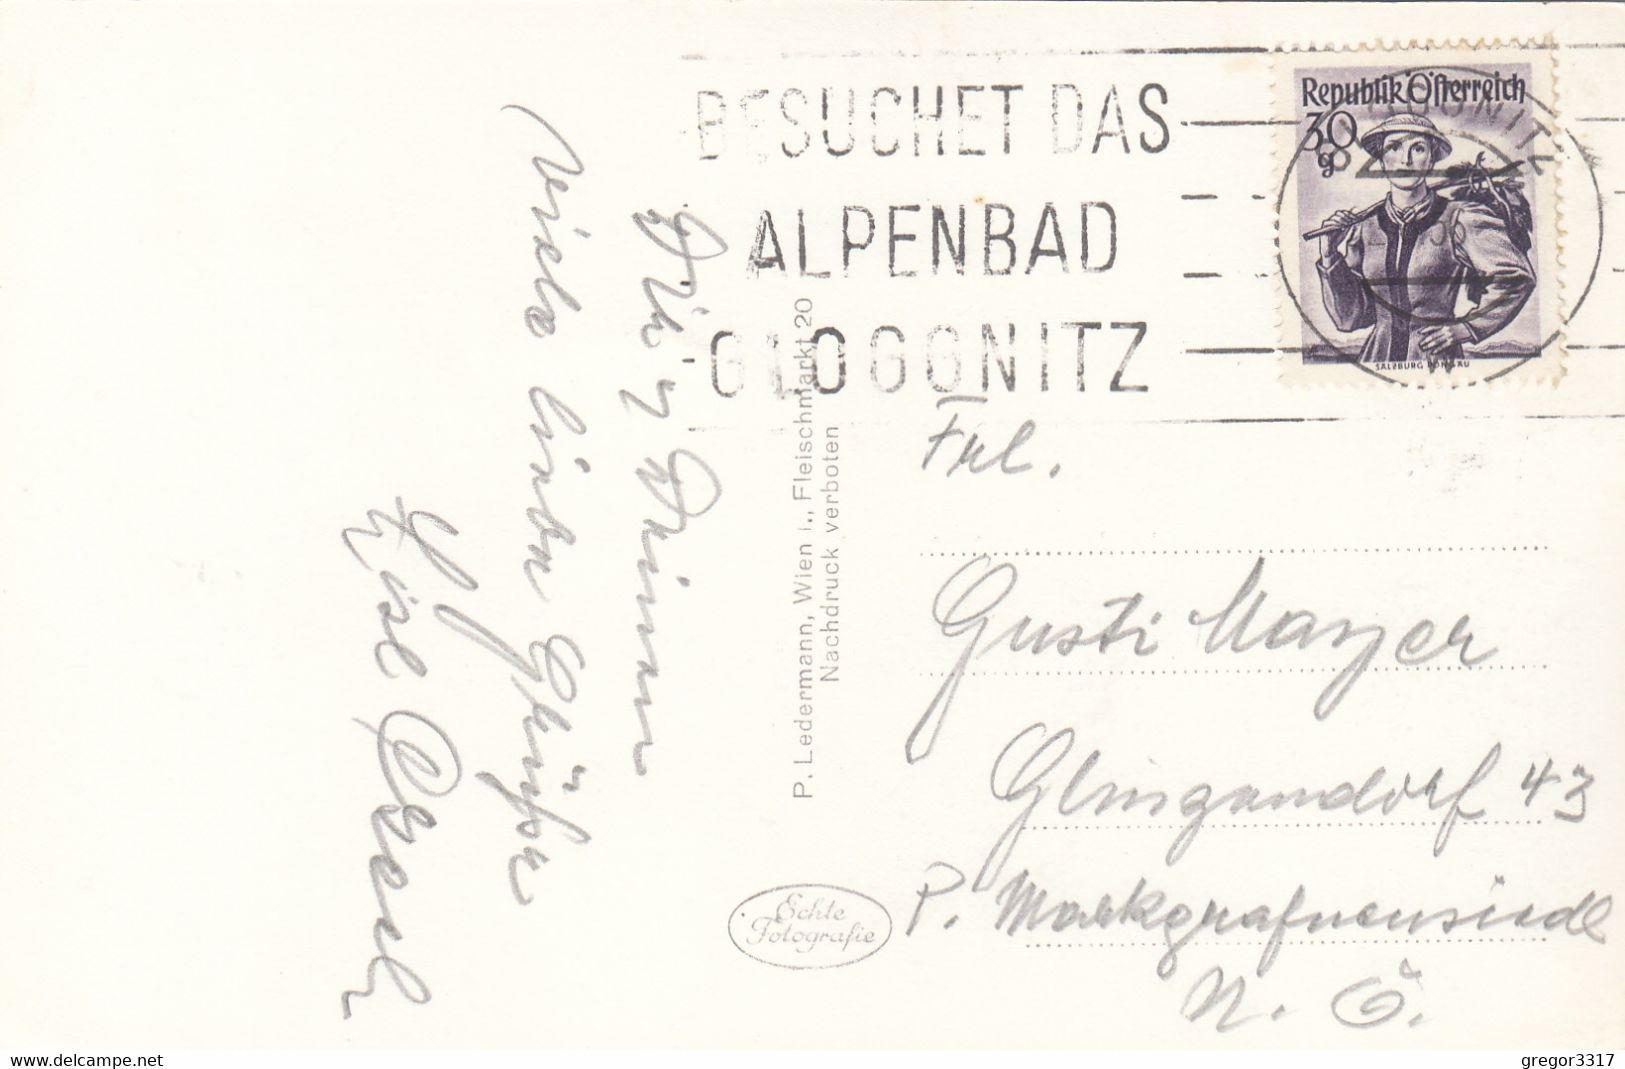 BESUCHET DAS
ALPENBAD
GLOGGNITZ
Republik Österreich
30
g
SALZBURG PONGAU
GLOGGNITZ
Dir u. Deinen
viele liebe Grüße
Lisl
P. Ledermann, Wien I., Fleischmarkt 20
Nachdruck verboten
Echte
Fotografie
Frl.
Gusti Mayer
Glinzendorf 43
P. Markgrafneusiedl
N. Ö.
www.delcampe.net
gregor3317